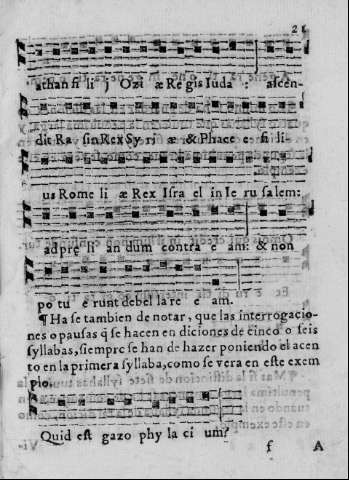 21
athan fi li j Ozi æ Re gis Iuda : ascen-
dit Ra sin Rex Sy ri æ & Phace e fi li
us Rome li æ Rex Isra el in Ie ru salem:
ad prę li an dum contra e am: & non
po tu e runt debel la re e am.
¶ Ha se tambien de notar, que las interrogacio-
nes o pausas q̃ se hacen en diciones de cinco o seis
syllabas, siempre se han de hazer poniendo el acen
to en la primera syllaba, como se vera en este exem
plo.
Quid est gazo phy la ci um?
f A